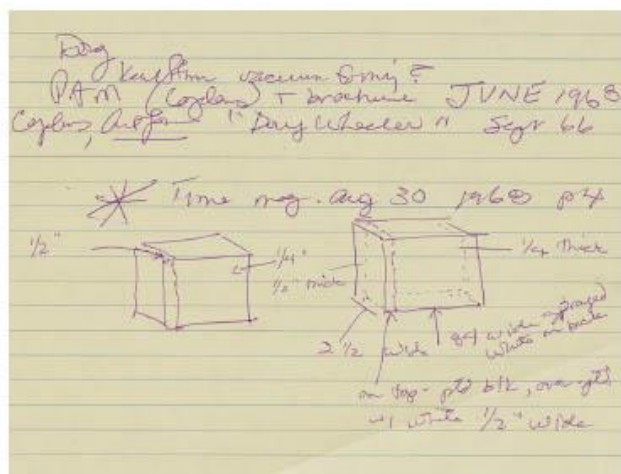 Doug
vacuum forming?
PAM (Coplans) + brochure JUNE 1968
Coplans, Artforum "Doug Wheeler" Sept 66
Time mag. Aug 30 1968 p
1/2"
1/4"
1/2" thick
1/4 thick
2 1/2 wide
wide sprayed
white on back
on top - ptd blk, over ptd
w/ white 1/2" wide